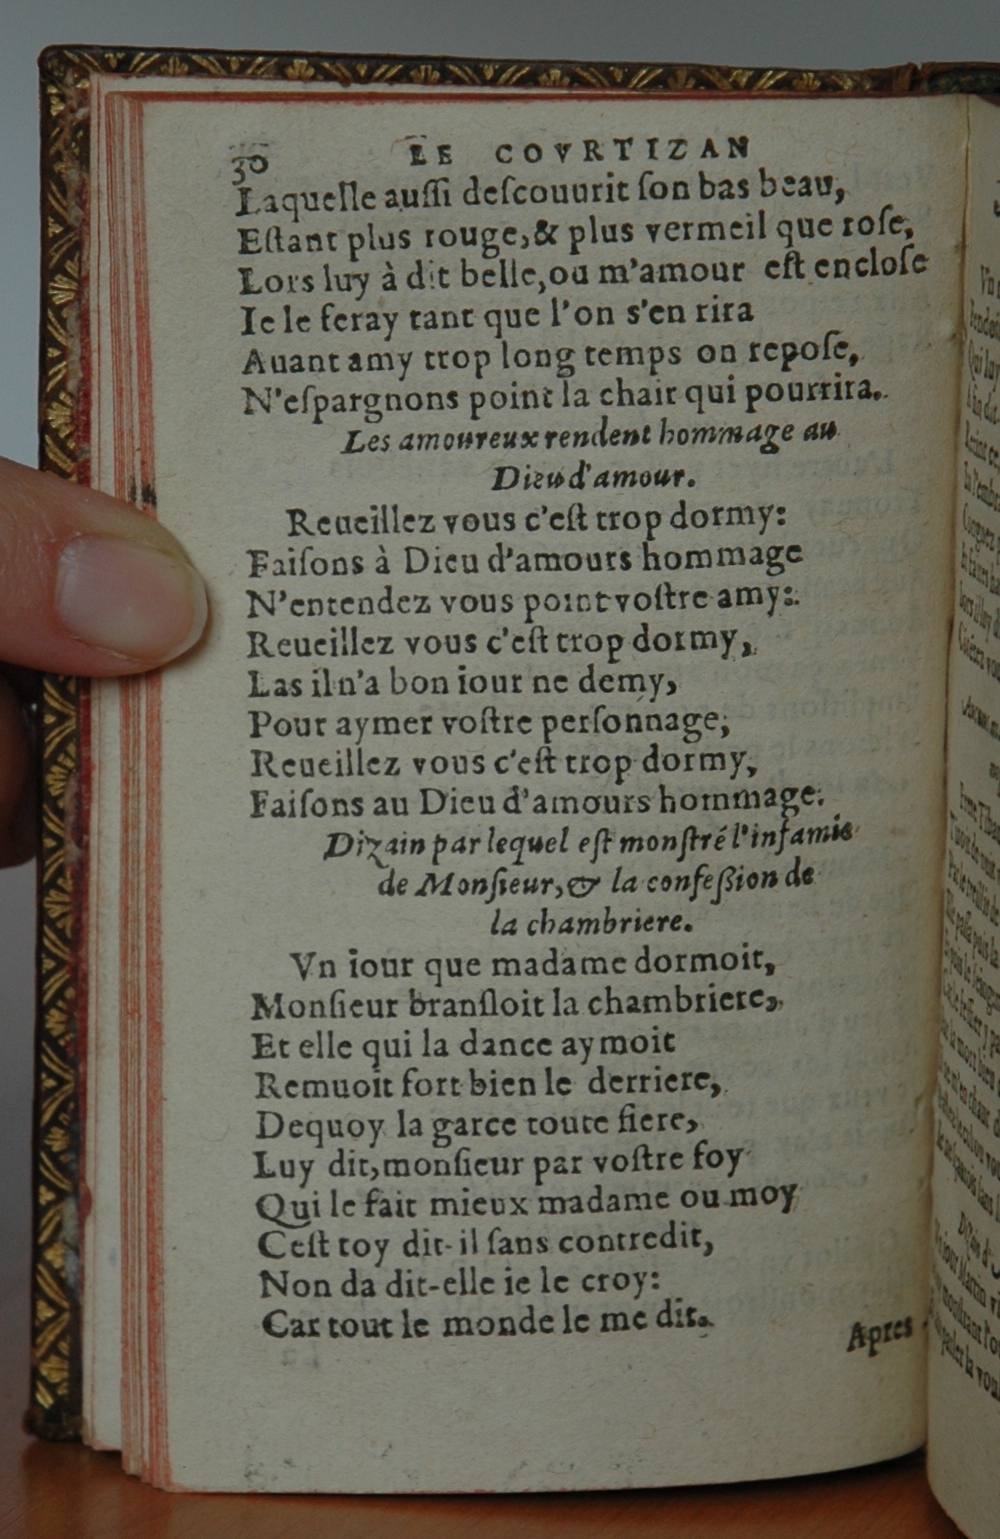 30 LE COVRTIZAN
Laquelle auſſi deſcouurit ſon bas beau,
Eſtant plus rouge,& plus vermeil que roſe,
Lors luy à dit belle,ou m'amour eſt encloſe
Ie le feray tant que l'on s'en rira
Auant amy trop long temps on repoſe,
N'eſpargnons point la chair qui pourrira.
Les amoureux rendent hommage au
Dieu d'amour.
Reueillez vous c'eſt trop dormy:
Faiſons à Dieu d'amours hommage
N'entendez vous point voſtre amy:
Reueillez vous c'eſt trop dormy,
Las il n'a bon iour ne demy,
Pour aymer voſtre perſonnage,
Reueillez vous c'eſt trop dormy,
Faiſons au Dieu d'amours hommage.
Dizain par lequel eſt monſtré l'infamie
de Monſieur,& la confeſſion de
la chambriere.
Vn iour que madame dormoit,
Monſieur branſloit la chambriere,
Et elle qui la dance aymoit
Remuoit fort bien le derriere,
Dequoy la garce toute fiere,
Luy dit,monſieur par voſtre foy
Qui le fait mieux madame ou moy
Ceſt toy dit-il ſans contredit,
Non da dit-elle ie le croy:
Car tout le monde le me dit.
Apres